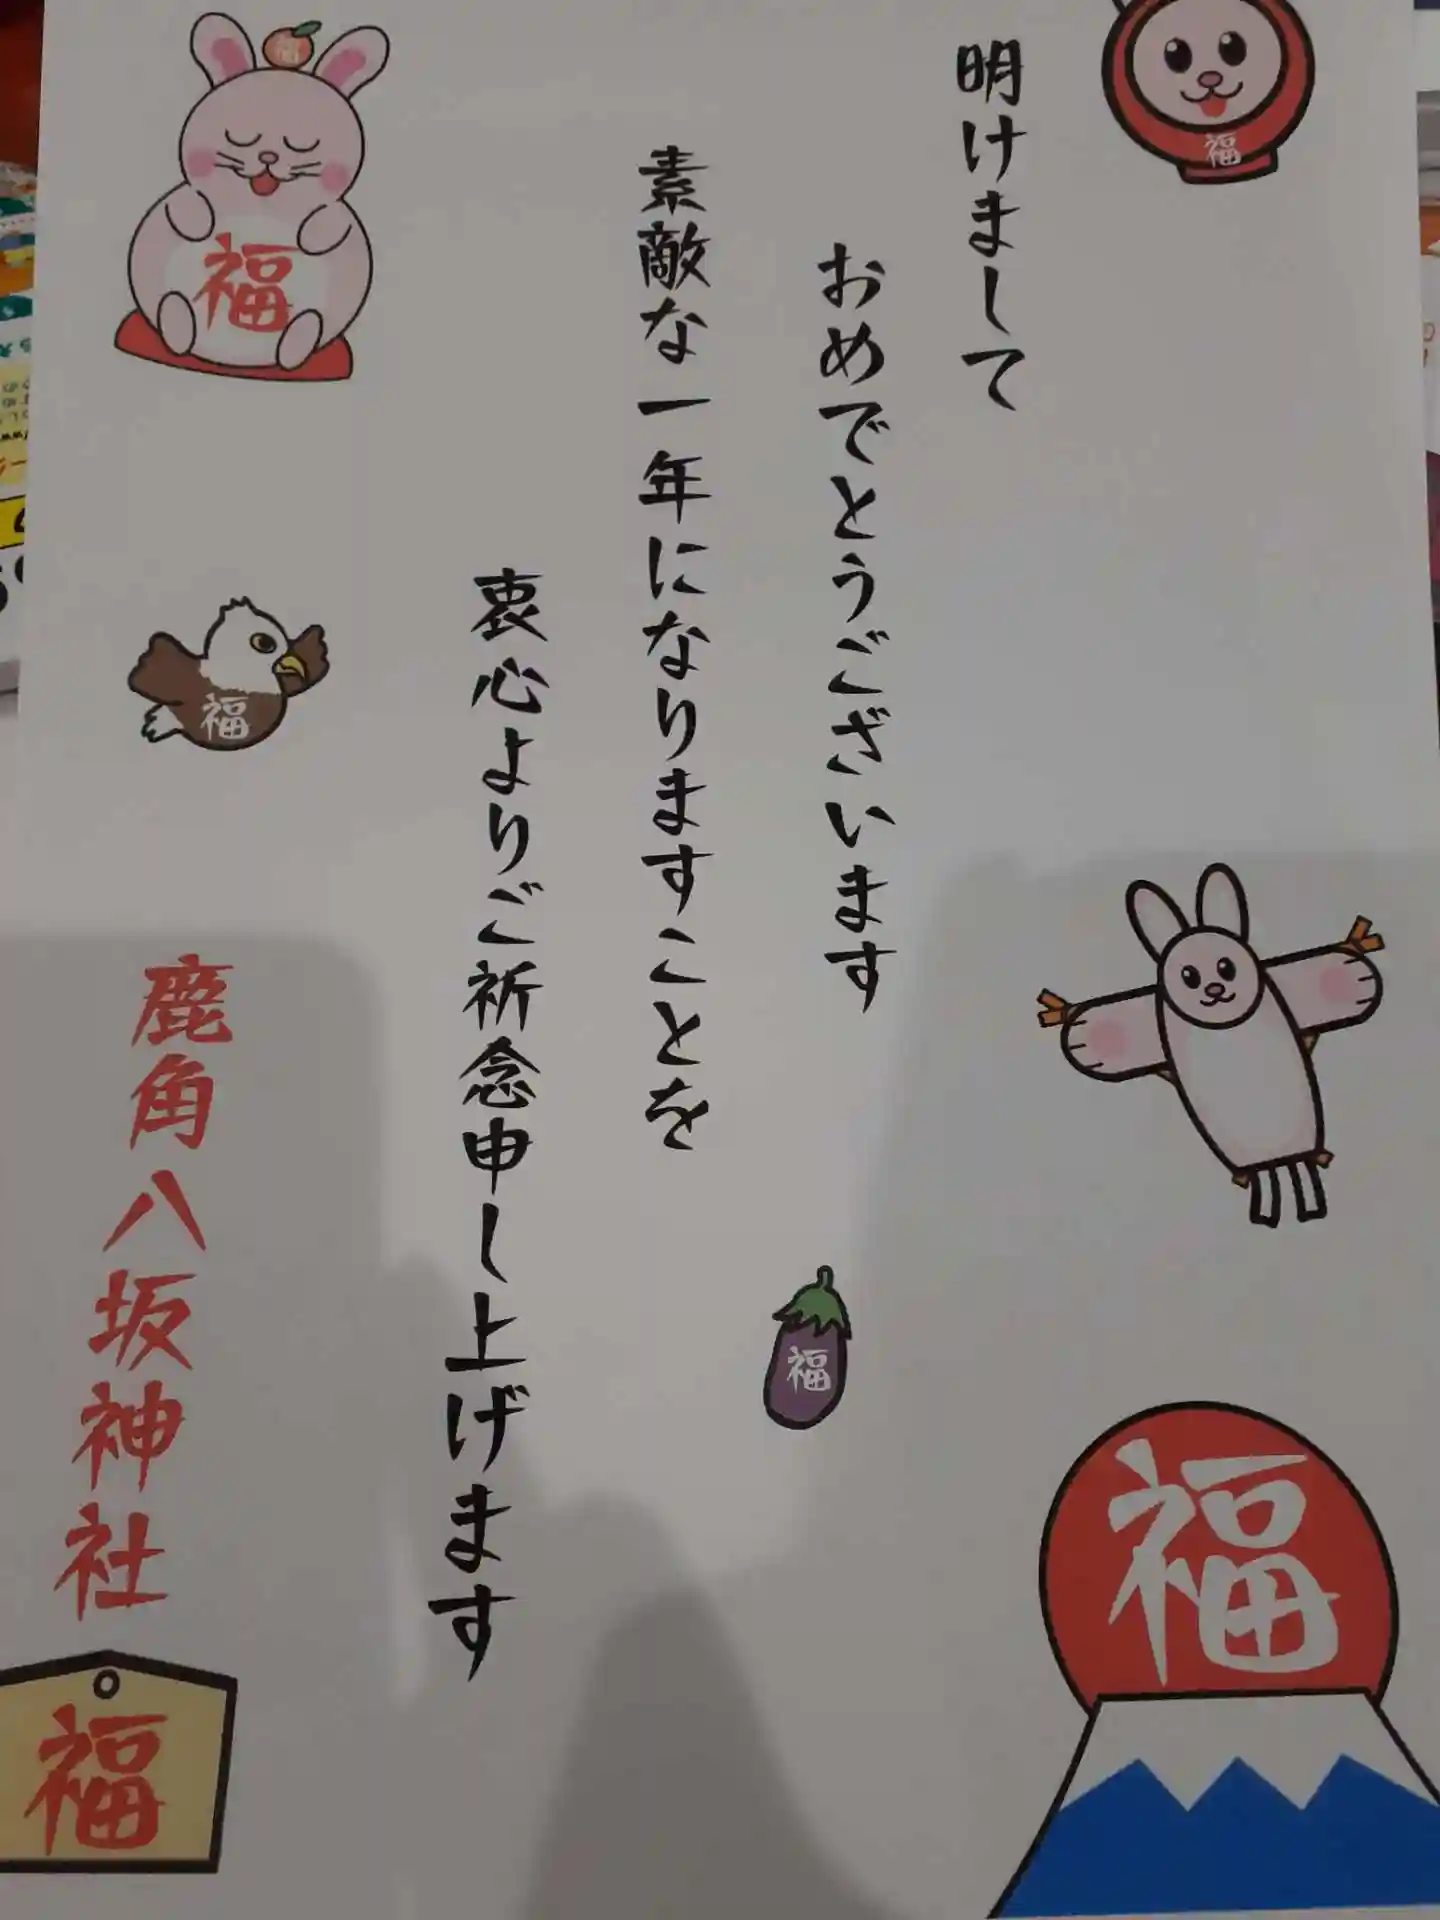 明けまして
おめでとうございます
素敵な一年になりますことを
衷心よりご祈念申し上げます
鹿角八坂神社
福
福
福
福
福
福
福